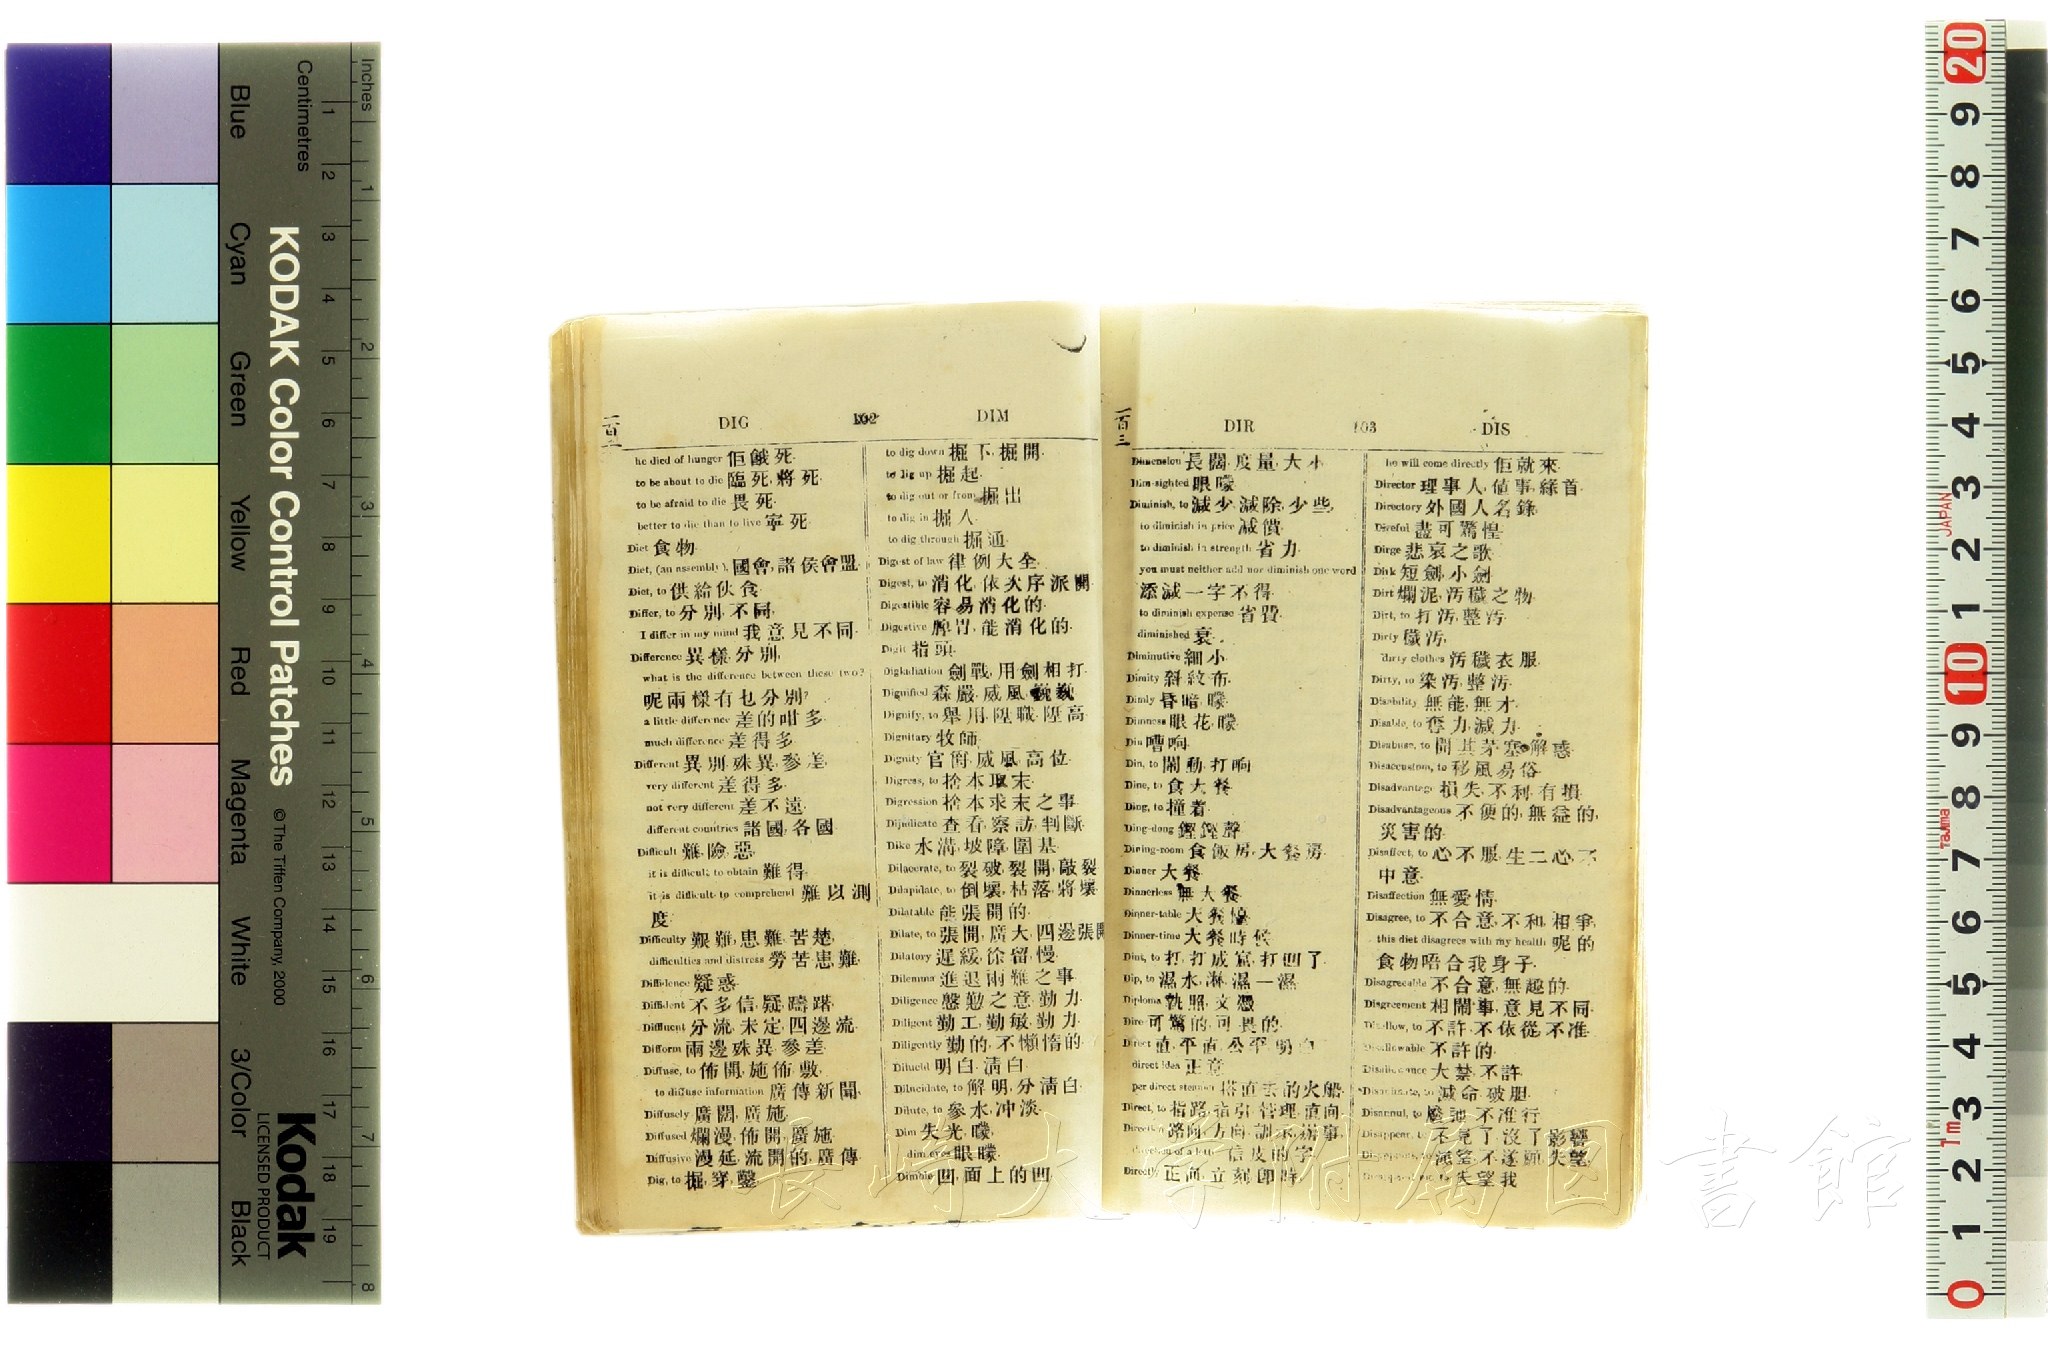 Inches
Centimetres
KODAK Color Control Patches © The Tiffen Company, 2000
Kodak
LICENSED PRODUCT
Blue
Cyan
Green
Yellow
Red
Magenta
White
3/Color
Black
DIG 102 DIM
he died of hunger 佢餓死.
to be about to die 臨死, 將死.
to be afraid to die 畏死.
better to die than to live 寧死.
Diet 食物.
Diet, (an assembly), 國會, 諸侯會盟.
Diet, to 供給伙食.
Differ, to 分別, 不同,
I differ in my mind 我意見不同.
Difference 異樣, 分別,
what is the difference between these two?
呢兩樣有乜分別?
a little difference 差的咁多.
much difference 差得多.
Different 異, 別, 殊異, 參差,
very different 差得多.
not very different 差不遠.
different countries 諸國, 各國.
Difficult 難, 險, 惡,
it is difficult to obtain 難得.
it is difficult to comprehend 難以測
度.
Difficulty 艱難, 患難, 苦楚,
difficulties and distress 勞苦患難,
Diffidence 疑惑.
Diffident 不多信, 疑, 躊躇.
Diffluent 分流, 未定, 四邊流.
Difform 兩邊殊異, 參差.
Diffuse, to 佈開, 施佈, 敷.
to diffuse information 廣傳新聞.
Diffusely 廣闊, 廣施,
Diffused 爛漫, 佈開, 廣施.
Diffusive 漫延, 流開的, 廣傳
Dig, to 掘, 穿, 鑿.
to dig down 掘下, 掘開.
to dig up 掘起.
to dig out or from 掘出
to dig in 掘入.
to dig through 掘通.
Digest of law 律例大全.
Digest, to 消化, 依次序派開.
Digestible 容易消化的.
Digestive 脾胃, 能消化的.
Digit 指頭.
Digladiation 劍戰, 用劍相打.
Dignified 森嚴, 威風, 巍巍
Dignify, to 舉用, 陞職, 陞高
Dignitary 牧師.
Dignity 官銜, 威風, 高位.
Digress, to 捨本取末.
Digression 捨本求末之事
Dijudicate 查看, 察訪, 判斷.
Dike 水溝, 坡障, 圍基.
Dilacerate, to 裂破, 裂開, 敲裂
Dilapidate, to 倒壞, 枯落, 將壞
Dilatable 能張開的.
Dilate, to 張開, 廣大, 四邊張開
Dilatory 遲緩, 徐留, 慢.
Dilemma 進退兩難之事
Diligence 慇勤之意, 勤力.
Diligent 勤工, 勤敏, 勤力.
Diligently 勤的, 不懶惰的
Dilucid 明白, 清白.
Dilucidate, to 解明, 分清白.
Dilute, to 參水, 冲淡.
Dim 失光, 矇,
dim eyes 眼矇.
Dimble 凹, 面上的凹.
一百三
DIR 103 DIS
Dimension 長闊, 度量, 大小
Dim-sighted 眼矇.
Diminish, to 減少, 減除, 少些,
to diminish in price 減價.
to diminish in strength 省力.
you must neither add nor diminish one word
添減一字不得.
to diminish expense 省費.
diminished 衰.
Diminutive 細小.
Dimity 斜紋布.
Dimly 昏暗, 矇.
Dimness 眼花, 矇.
Din 嘈响.
Din, to 鬧動, 打响
Dine, to 食大餐
Ding, to 撞着.
Ding-dong 鏗鏗聲
Dining-room 食飯房, 大餐房.
Dinner 大餐.
Dinnerless 無大餐
Dinner-table 大餐檯.
Dinner-time 大餐時候
Dint, to 打, 打成窩, 打凹了.
Dip, to 濕水, 淋, 濕一濕.
Diploma 執照, 文憑
Dire 可驚的, 可畏的.
Direct 直, 平直, 公平, 明白.
direct idea 正意.
per direct steamer 搭直去的火船.
Direct, to 指路, 指引, 管理, 直向.
Direction 路向, 方向,
Directly 正向, 立刻, 即時.
he will come directly 佢就來.
Director 理事人, 值事, 緣首.
Directory 外國人名錄.
Direful 盡可駡惶.
Dirge 悲哀之歌.
Dirk 短劍, 小劍.
Dirt 爛泥, 汚穢之物
Dirt, to 打汚, 整汚.
Dirty 穢汚,
dirty clothes 汚穢衣服.
Dirty, to 染汚, 整汚.
Disability 無能, 無才.
Disable, to 奪力, 減力.
Disabuse, to 開其茅塞, 解惑.
Disaccustom, to 移風易俗.
Disadvantage 損失, 不利, 有損.
Disadvantageous 不便的, 無益的,
災害的.
Disaffect, to 心不服, 生二心, 不
中意.
Disaffection 無愛情.
Disagree, to 不合意, 不和, 相爭,
this diet disagrees with my health 呢的
食物唔合我身子.
Disagreeable 不合意, 無趣的.
Disagreement 相鬧事, 意見不同.
Disallow, to 不許, 不依從, 不准.
Disallowable 不許的.
大禁, 不許.
滅命, 破胆.
Disannul, to 廢弛, 不准行
Disappear, to 不見了, 沒了影響
不遂願, 失望.
失望我
長崎大学附属図書館
JAPAN
Tajima
1m